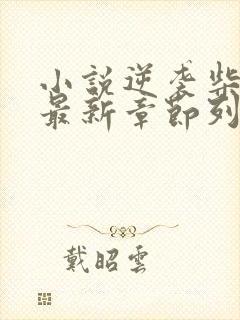 小說逆袭柴
最新章節列
戴昭雲